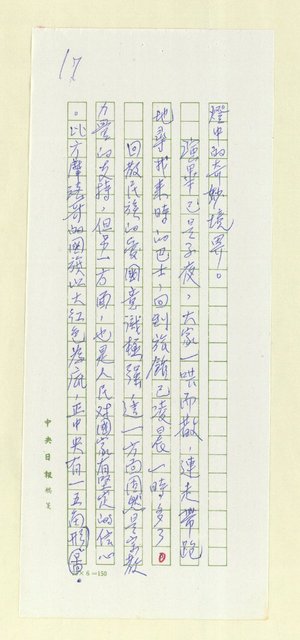 17
燈中的奇妙境界。
演畢已是子夜，大家一哄而散，連走帶跑
地尋找來時的巴士，回到旅館已凌晨一時多了。
回教民族的愛國意識極強，這一方面固然是宗教
力量的支持，但另一方面，也是人民對國家有堅实的信心
。比方摩洛哥的國旗以大紅色為底，正中央有一五角形圖。
中央日報稿箋
×6＝150